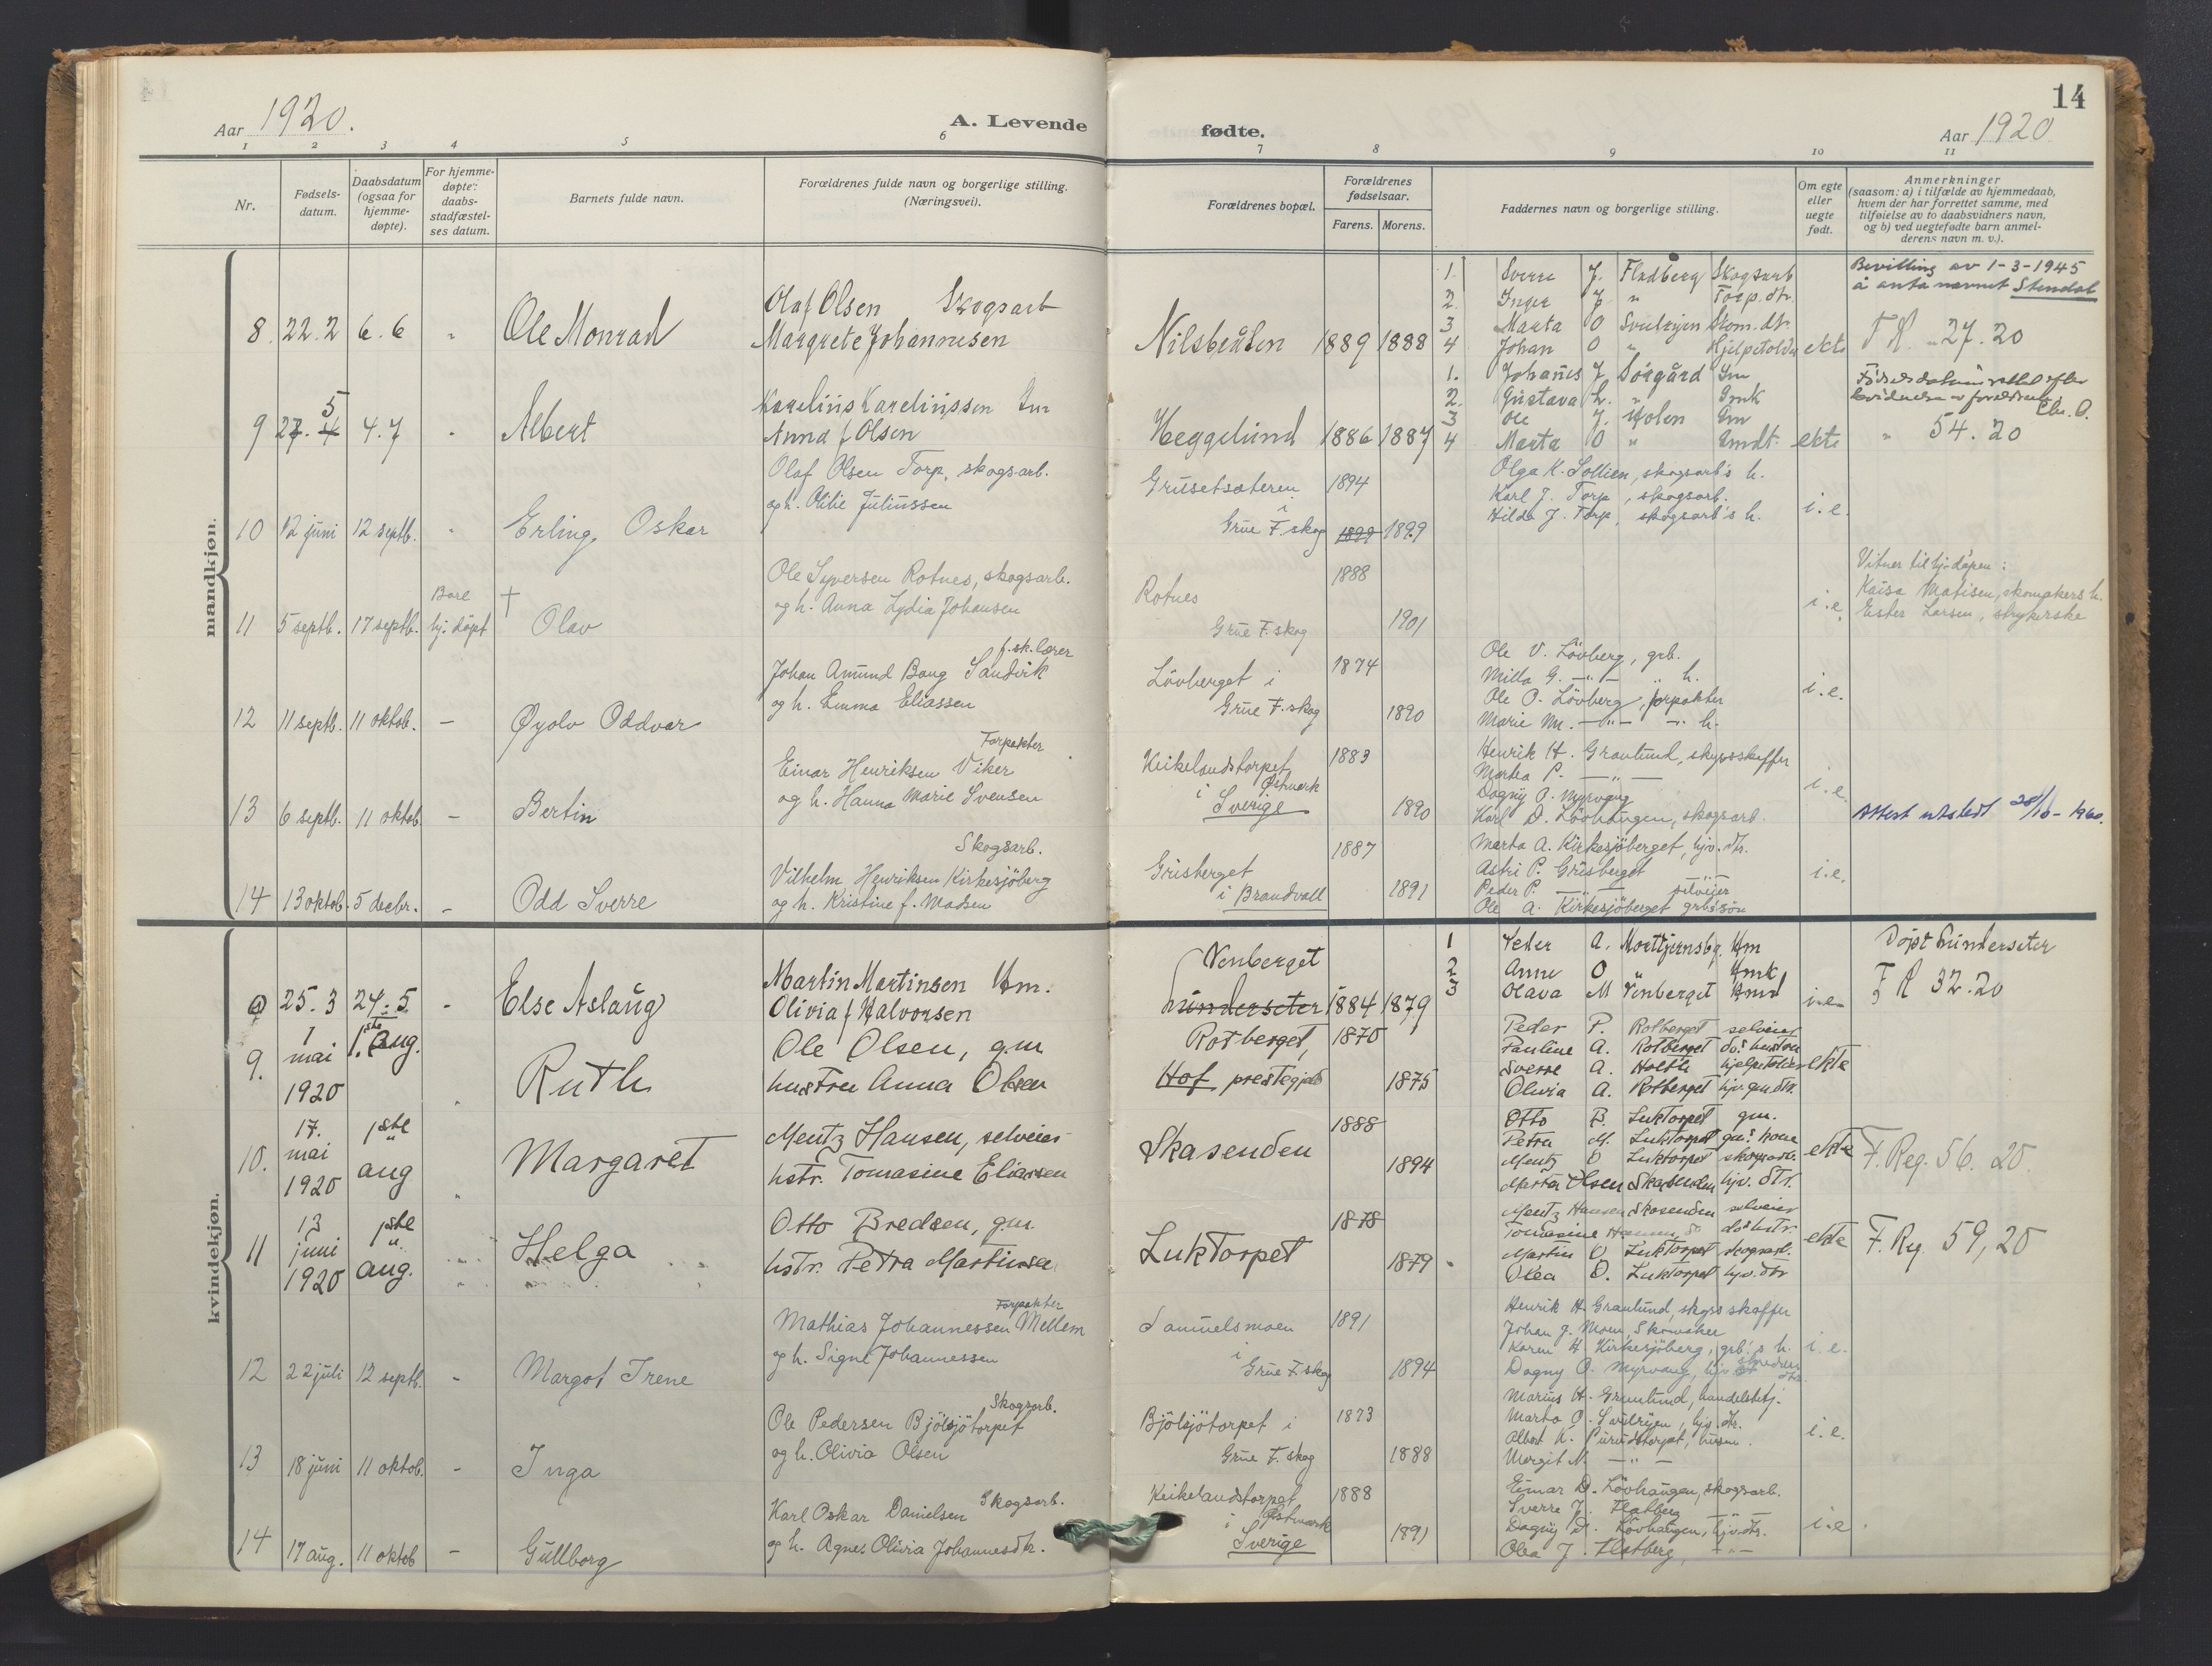 14
Aar 1920.
A. Levende
fødte.
Aar 1920
1 2 3 4 5 6 7 8 9 10 11
Nr.
Fødsels-
datum.
Daabsdatum
(ogsaa for
hjemme-
døpte).
For hjemme-
døpte:
daabs-
stadfæstel-
ses datum.
Barnets fulde navn.
Forældrenes fulde navn og borgerlige stilling.
(Næringsvei).
Forældrenes bopæl.
Forældrenes
fødselsaar.
Farens. Morens.
Faddernes navn og borgerlige stilling.
Om egte
eller
uegte
født.
Anmerkninger
(saasom: a) i tilfælde av hjemmedaab,
hvem der har forrettet samme, med
tilføielse av to daabsvidners navn,
og b) ved uegtefødte barn anmel-
derens navn m. v.).
mandkjøn.
8. 22.2 6.6 " Ole Monrad
Olaf Olsen Skogsarb
Margrete Johannesen
Nilsbeåsen 1889 1888
1. Sverre J. Fladberg Skogsarb
2. Inger J. " Torp. dtr.
3 Marta O Svulrijen Skom. dtr.
4 Johan O " Hjelpetolder
ekte
Bevilling av 1-3-1945
å anta navnet Stendal
F R. " 27.20
9 27. 4 5 4.7 " Albert
Karelius Kareliussen Gm
Anna f Olsen
Heggelund 1886 1887
1. Johanes J Sørgård Gm
2. Gustava L. " Gmk
3 Ole J. Molen Gm
4 Marta O " Gmdt.
ekte
" 54.20
10 12 juni 12 septb. " Erling Oskar
Olaf Olsen Torp, skogsarb.
og h. Otilie Juliussen
Grusetsæteren
i
Grue F. skog
1894
1899 1899
Olga K. Sollien, skogsarb's h.
Karl J. Torp, skogsarb.
Hilda J. Torp, skogsarb's h.
i.e.
11 5 septb. 17 septb. Bare
hj. døpt
† Olav
Ole Syversen Rotnes, skogsarb.
og h. Anna Lydia Johansen
Rotnes
Grue F. skog
1888
1901
i.e.
Vitner til hj. dåpen:
Kaisa Matisen, skomakers h.
Ester Larsen, strykerske
12 11 septb. 11 oktob. – Øyolv Oddvar
f. sk. lærer
Johan Amund Bang Sandvik
og h. Emma Eliassen
Lövberget i
Grue F. skog
1874
1890
Ole V. Lövberg, grb.
Milla G. –"– " h.
Ole O. Lövberg, forpakter
Marie M. –"– –" h.
i.e.
13 6 septb. 11 oktob. – Bertin
Forpakter
Einar Henriksen Viker
og h. Hanna Marie Svensen
Keikelandstorpet
i Østmark
Sverige
1883
1890
Henrik H. Granlund, skysskaffer
Martea P. –"–
Dagny O. Myrvang
Karl D. Lövhaugen, skogsarb.
i.e.
Attest utstedt 28/10 - 1960.
14 13 oktob. 5 decbr. – Odd Sverre
Skogsarb.
Vilhelm Henriksen Kirkesjöberg
og h. Kristine f. Madsen
Grisberget
i Brandvall
1887
1891
Marta A. Kirkesjöberget, hjv. dtr.
Astri P. Grisberget –"–
Peder P. –"– selveier
Ole A. Kirkesjöberget grb's sön
i.e.
kvindekjøn.
25.3 24.5 " Else Aslaug
Martin Martinsen Hm.
Olivia f Halvorsen
Venberget
Lunderseter
1884 1879
1 Peder A. Morttjernsbg. Hm
2 Anne O " Hmk
3 Olava M Venberget Hmd
i.e.
Døpt Lunderseter
F R 32.20
9. 1
mai
1920
1ste
aug.
" Ruth
Ole Olsen, gm.
hustru Anna Olsen
Rotberget,
Hof prestegjeld
1870
1875
Peder P. Rotberget selveier
Pauline A. Rotberget do's hustru
Sverre A. Holth hjelpetolder
Olivia A. Rotberget hjv. gm. dtr.
ekte
10. 17.
mai
1920
1ste
"
aug
" Margaret
Mentz Hansen, selveier
hstr. Tomasine Eliassen
Skasenden
1888
1894
Otto B. Luktorpet gm.
Petra M. Luktorpet gm's kone
Mentz O Luktorpet skogsarb.
Marta Olsen Skasenden hjv. dtr.
ekte
F. Reg. 56. 20.
11 13
juni
1920
1ste
"
aug.
Helga
Otto Bredsen, gm.
hstr. Petra Martinsen
Luktorpet
1878
1879
Mentz Hansen Skasenden selveier
Tomasine Hansen do do's hstr.
Martin O Luktorpet skogsarb.
Olea O. Luktorpet hjv. dtr
ekte
F. Reg. 59, 20
12 22 juli 12 septb. – Margot Irene
Forpakter
Mathias Johannessen Mellem
og h. Signe Johannessen
Samuelsmoen
i
Grue F. skog
1891
1894
Henrik H. Granlund, skysskaffer
Johan J. Moen, Skomaker
Karen H. Kirkesjöberg, grb.'s h.
Dagny O. Myrvang, hjv. dtr.
i.e.
13 18 juni 11 oktob. – Inga
Skogsarb.
Ole Pedersen Bjölsjötorpet
og h. Olivia Olsen
Bjölsjötorpet i
Grue F. skog
1873
1888
Marius H. Granlund, handelsbetj.
Marta O. Svulrijen, hjv. dtr.
Albert K. Purustorpet, husm.
Margit N. –"–
i.e.
14 17 aug. 11 oktob – Gullborg
Karl Oskar Danielsen Skogsarb.
og h. Agnes Olivia Johannesdtr.
Keikelandstorpet
i Østmark
Sverige
1888
1891
Einar D. Lövhaugen, skogsarb.
Sverre J. Flatberg –"–
Dagny D. Lövhaugen, hjv. dtr.
Olea J. Flatberg, –"–
i.e.